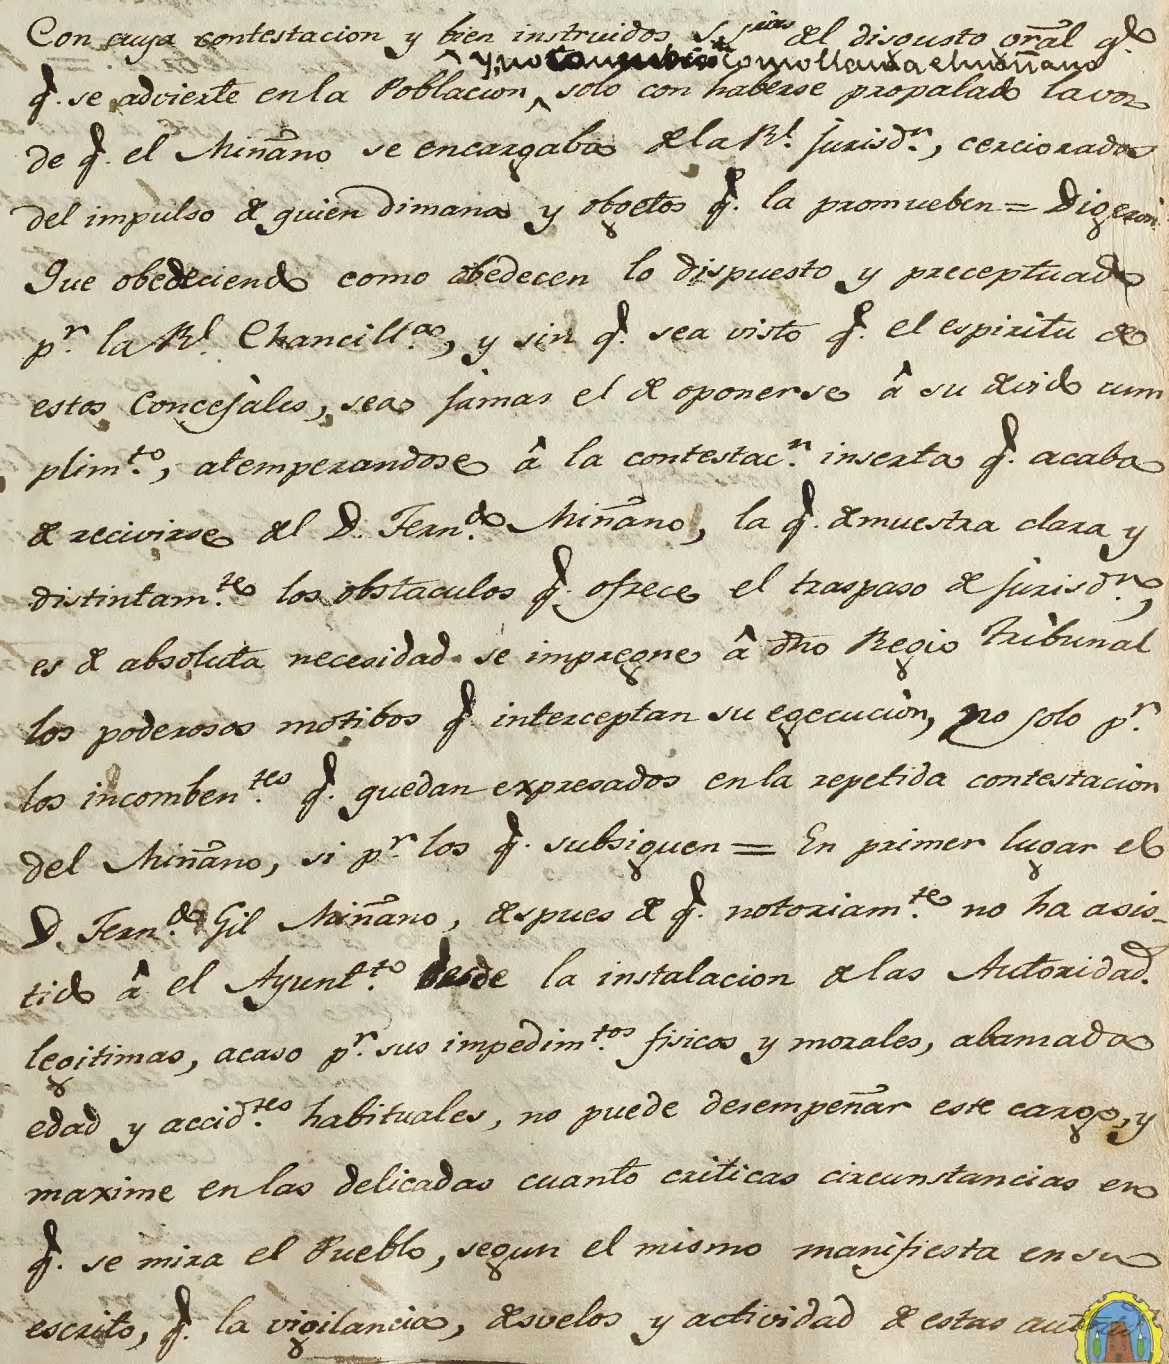 Con cuya contestacion y bien instruidos S. Srias del disgusto oral qe
y no como llama el miñano
q. se advierte en la Poblacion, solo con haberse propalado la voz
de q. el Miñano se encargaba de la Rl. jurisdn., cerciorados
del impulso de quien dimana y obgetos q. la promueben = Digeron
Que obedeciendo como obedecen lo dispuesto y preceptuado
pr. la Rl. Chancillas., y sin q. sea visto q. el espiritu de
estos Concejales, sea jamas el de oponerse â su devido cum
plimto., atemperandose â la contestacn. inserta q. acaba
de recivirse del D. Ferndo. Miñano, la q. demuestra clara y
distintamte. los obstaculos q. ofrece el traspaso de jurisdn.,
es de absoluta necesidad se impregne â dho Regio Tribunal
los poderosos motibos q. interceptan su egecucion, no solo pr.
los incombentes. q. quedan expresados en la repetida contestacion
del Miñano, si pr. los q. subsiguen = En primer lugar el
D. Ferndo. Gil Miñano, despues de q. notoriamte. no ha asis-
tido â el Ayuntto. desde la instalacion de las Autoridad.
legitimas, acaso pr. sus impedimtos. fisicos y morales, abamzada
edad y accidtes. habituales, no puede desempeñar este cargo, y
maxime en las delicadas cuanto criticas circunstancias en
q. se mira el Pueblo, segun el mismo manifiesta en su
escrito, q. la vigilancia, desvelos y actividad de estas